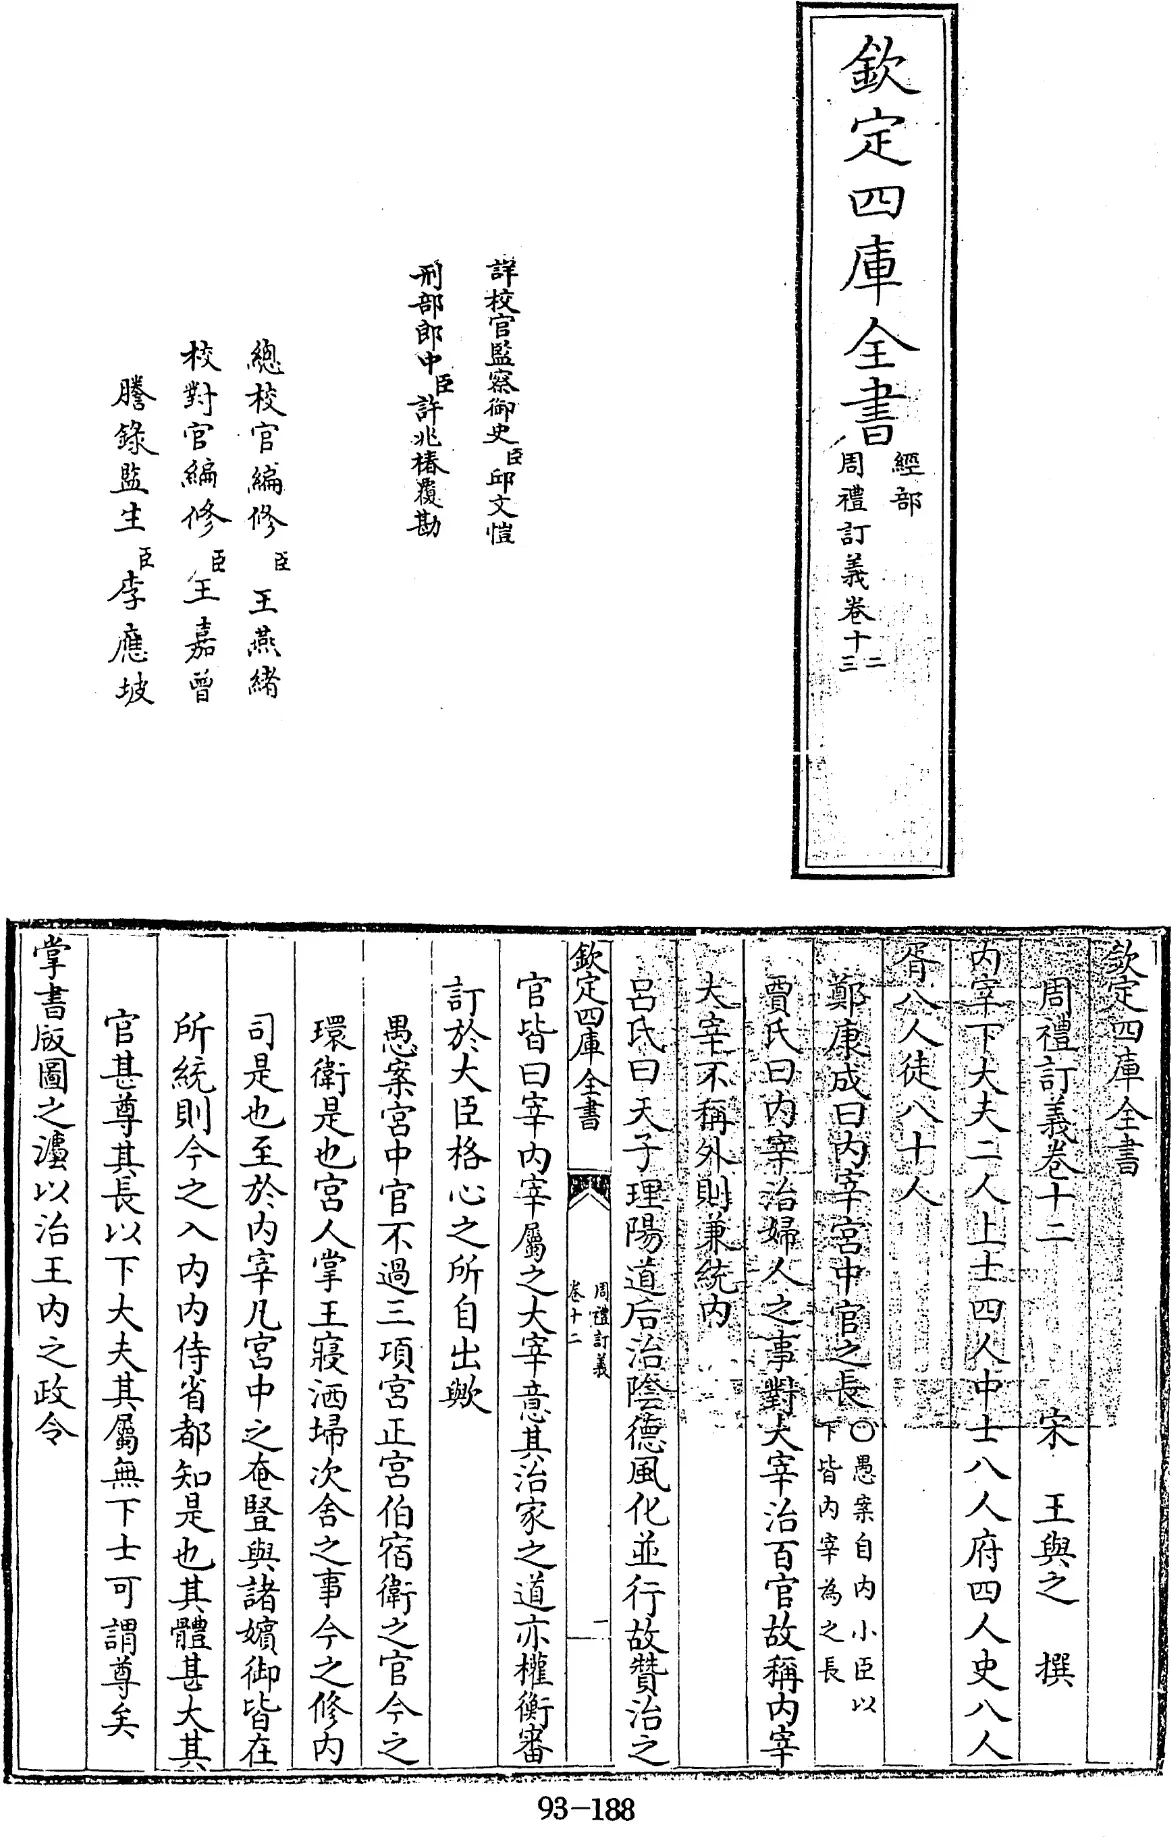 欽定四庫全書
經部
周禮訂義卷十二
三
詳校官監察御史臣邱文愷
刑部郎中臣許兆椿覆勘
總校官編修臣王燕緒
校對官編修臣王嘉曾
謄錄監生臣李應坡
欽定四庫全書
周禮訂義卷十二
宋 王與之 撰
內宰下大夫二人上士四人中士八人府四人史八人
胥八人徒八十人
鄭康成曰內宰宮中官之長〇愚案自內小臣以
下皆內宰為之長
賈氏曰內宰治婦人之事對大宰治百官故稱內宰
大宰不稱外則兼統內
呂氏曰天子理陽道后治陰德風化並行故贊治之
欽定四庫全書
周禮訂義
卷十二
一
官皆曰宰內宰屬之大宰意其治家之道亦權衡審
訂於大臣格心之所自出歟
愚案宮中官不過三項宮正宮伯宿衛之官今之
環衛是也宮人掌王寢洒埽次舍之事今之修內
司是也至於內宰凡宮中之奄豎與諸嬪御皆在
所統則今之入內內侍省都知是也其體甚大其
官甚尊其長以下大夫其屬無下士可謂尊矣
掌書版圖之灋以治王內之政令
93-188